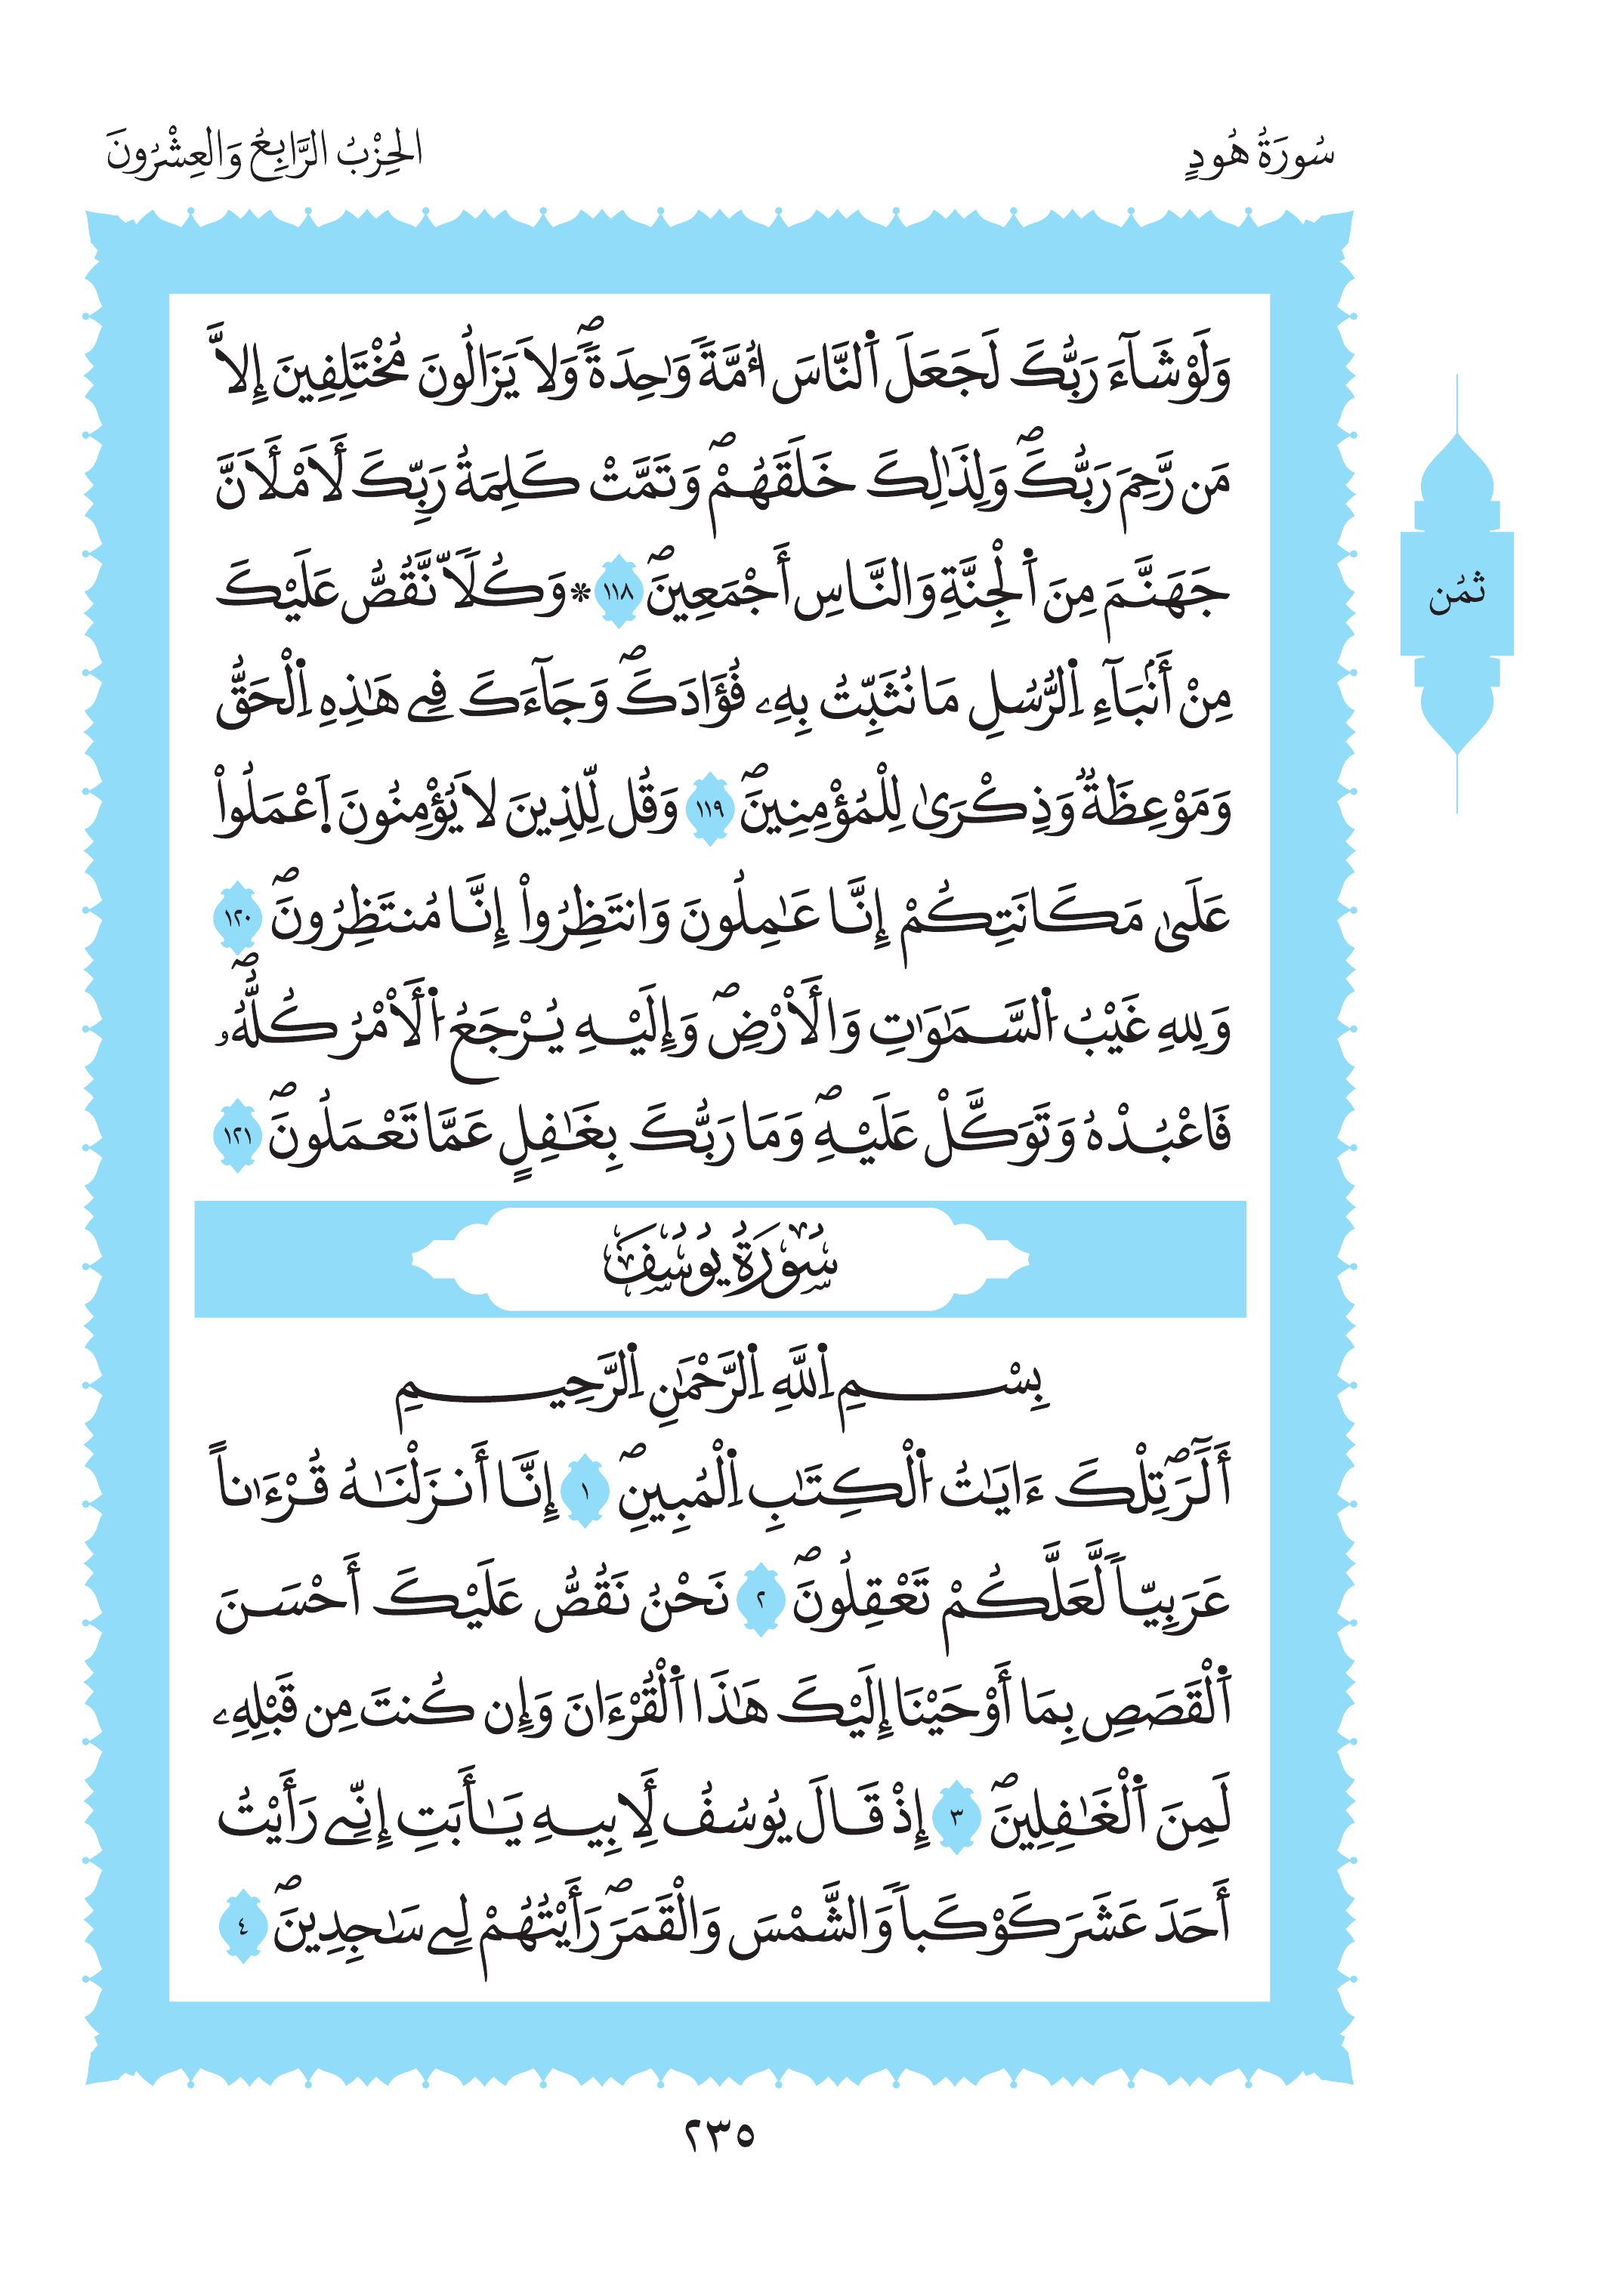 سُورَةُ هُودٍ
الحِزْبُ الرَّابِعُ وَالعِشْرُونَ
وَلَوْ شَآءَ رَبُّكَ لَجَعَلَ اَ۬لنَّاسَ أُمَّةٗ وَٰحِدَةٗۖ وَلَا يَزَالُونَ مُخْتَلِفِينَ إِلَّا
مَن رَّحِمَ رَبُّكَۖ وَلِذَٰلِكَ خَلَقَهُمْۖ وَتَمَّتْ كَلِمَةُ رَبِّكَ لَأَمْلَأَنَّ
جَهَنَّمَ مِنَ اَ۬لْجِنَّةِ وَالنَّاسِ أَجْمَعِينَۖ ١١٨ * وَكُلّاٗ نَّقُصُّ عَلَيْكَ
ثُمُن
مِنْ أَنۢبَآءِ اِ۬لرُّسُلِ مَا نُثَبِّتُ بِهِۦ فُؤَادَكَۖ وَجَآءَكَ فِے هَٰذِهِ اِ۬لْحَقُّ
وَمَوْعِظَةٞ وَذِكْرَىٰ لِلْمُؤْمِنِينَۖ ١١٩ وَقُل لِّلذِينَ لَا يُؤْمِنُونَ اَ۪عْمَلُواْ
عَلَىٰ مَكَانَتِكُمْ إِنَّا عَٰمِلُونَ وَانتَظِرُواْ إِنَّا مُنتَظِرُونَۖ ١٢٠
وَلِلهِ غَيْبُ اُ۬لسَّمَٰوَٰتِ وَالْأَرْضِۖ وَإِلَيْهِ يُرْجَعُ اُ۬لْأَمْرُ كُلُّهُۥۖ
فَاعْبُدْهُ وَتَوَكَّلْ عَلَيْهِۖ وَمَا رَبُّكَ بِغَٰفِلٍ عَمَّا تَعْمَلُونَۖ ١٢١
سُورَةُ يُوسُفَ
بِسْمِ اِ۬للَّهِ اِ۬لرَّحْمَٰنِ اِ۬لرَّحِيمِ
أَلَٓرَۖ تِلْكَ ءَايَٰتُ اُ۬لْكِتَٰبِ اِ۬لْمُبِينِۖ ١ إِنَّا أَنزَلْنَٰهُ قُرْءَٰناً
عَرَبِيّاٗ لَّعَلَّكُمْ تَعْقِلُونَۖ ٢ نَحْنُ نَقُصُّ عَلَيْكَ أَحْسَنَ
اَ۬لْقَصَصِ بِمَا أَوْحَيْنَا إِلَيْكَ هَٰذَا اَ۬لْقُرْءَانَ وَإِن كُنتَ مِن قَبْلِهِۦ
لَمِنَ اَ۬لْغَٰفِلِينَۖ ٣ إِذْ قَالَ يُوسُفُ لِأَبِيهِ يَٰأَبَتِ إِنِّے رَأَيْتُ
أَحَدَ عَشَرَ كَوْكَباٗ وَالشَّمْسَ وَالْقَمَرَۖ رَأَيْتُهُمْ لِے سَٰجِدِينَۖ ٤
٢٣٥